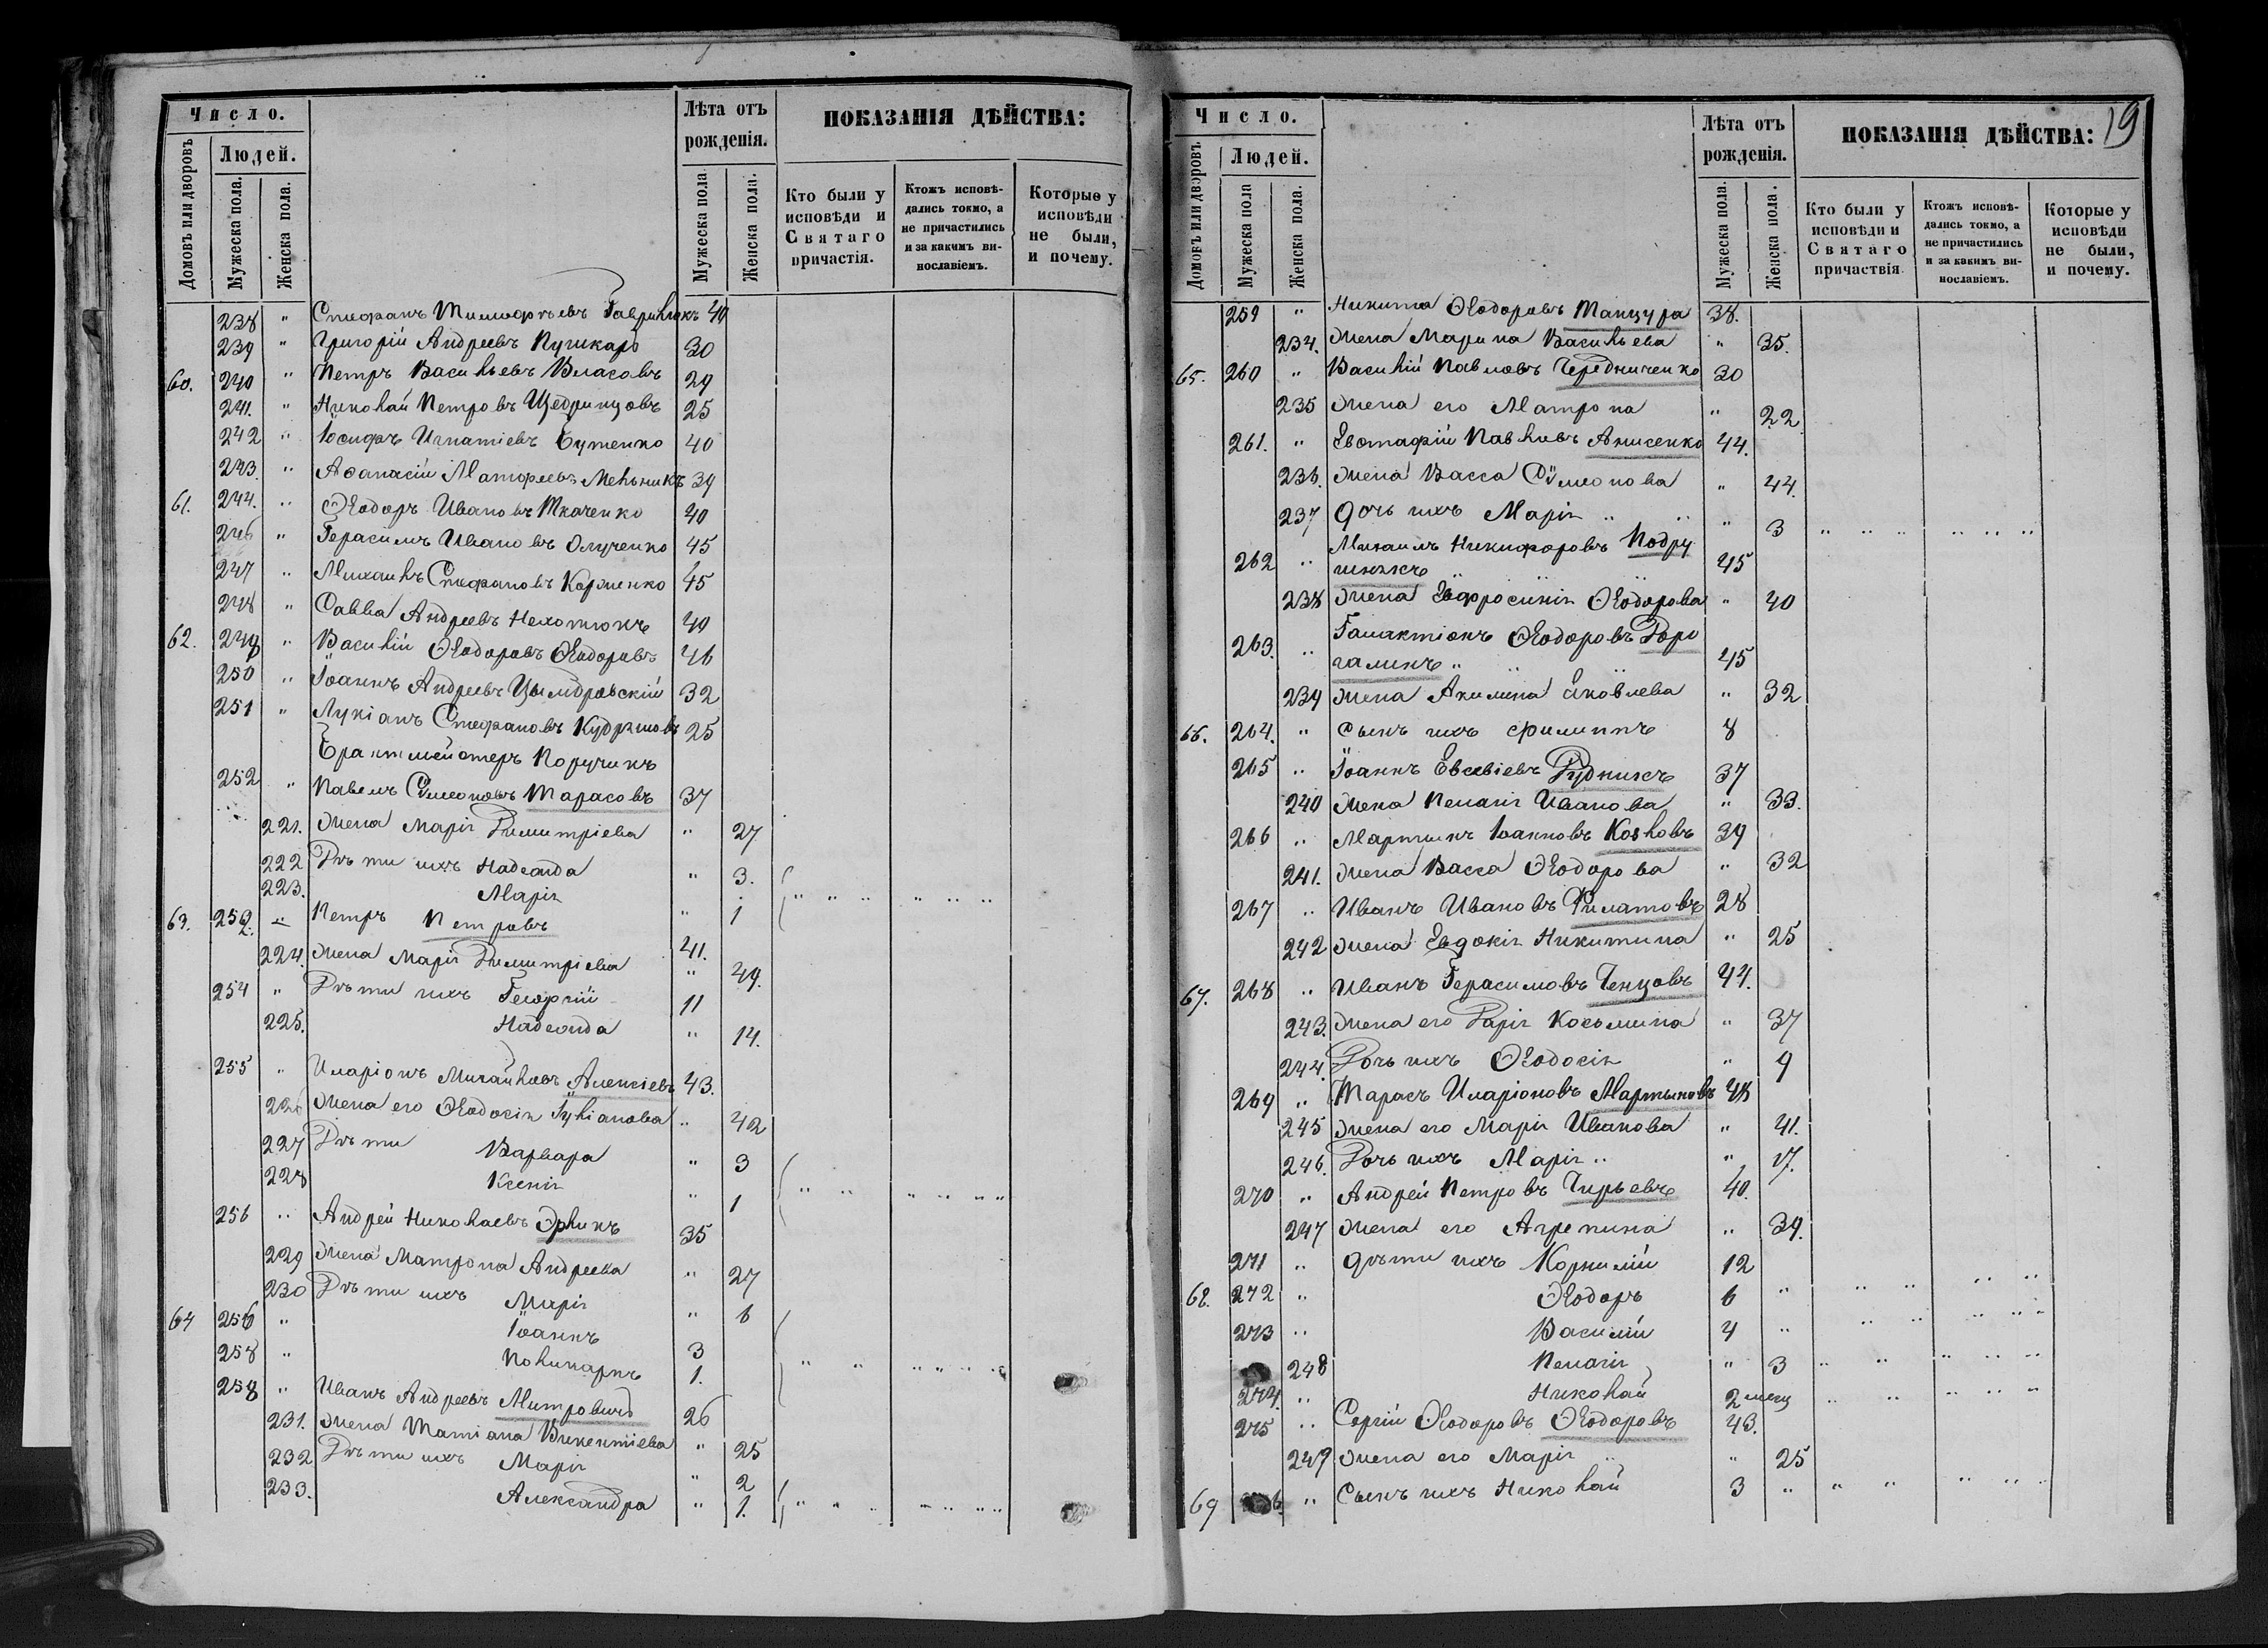 Число.
Лѣта отъ рожденія.
ПОКАЗАНІЯ ДѢЙСТВА:
Домовъ или дворовъ
Людей.
Мужеска пола.
Женска пола.
Мужеска пола
Женска пола.
Кто были у исповѣди и Святаго причастія.
Ктожъ исповѣ-дались токмо, а не причастились и за какимъ ви-нословіемъ.
Которые у исповѣди не были, и почему.
238 " Стефанъ Тимофѣевъ Гаврилюкъ 40
239 " Григорій Андреевъ Пушкарь 30
60. 240 " Петръ Васильевъ Власовъ 29
241. " Николай Петровъ Щедринцовъ 25
242 " Іосифъ Игнатіевъ Бутенко 40
243. " Аѳанасій Матфеевъ Мельникъ 39
61. 244. " Ѳеодоръ Ивановъ Ткаченко 40
246 " Герасимъ Ивановъ Олученко 45
247 " Михаилъ Стефановъ Корженко 45
248 " Савва Андреевъ 40
62. 249 " Василій Ѳеодоровъ Ѳеодоровъ 46
250 " Іоаннъ Андреевъ 32
251 " Лукіанъ Стефановъ 25
Поручикъ
252 " Павелъ Сѵмеоновъ Тарасовъ 37
221. Жена Марія Димитріева " 27
222 Дѣти ихъ Надежда " 3.
223. Марія " 1 " " " " " "
63. 252. " Петръ Петровъ 41.
224. Жена Марія Димитріева " 49.
254 " Дѣти ихъ Георгій 11
225. Надежда " 14.
255 " Иларіонъ Михайловъ Алексіевъ 43.
226 Жена его Ѳеодосія Луkіанова " 42
227 Дѣти Варвара " 3
228 Ксенія " 1 " " " " " "
256 " Андрей Николаевъ 35
229 Жена Матрона Андреева " 27
230 Дѣти ихъ Марія " 6
64 256 " Іоаннъ 3
258 " Поликарпъ 1. " " " " " "
258 " Иванъ Андреевъ Митровичъ 26
231. Жена Татіана Викентіева " 25
232 Дѣти ихъ Марія " 2
233. Александра " 1. " " " " " "
19
Число.
Лѣта отъ рожденія.
ПОКАЗАНІЯ ДѢЙСТВА:
Домовъ или дворовъ.
Людей.
Мужеска пола
Женска пола.
Мужеска пола.
Женска пола.
Кто были у исповѣди и Святаго причаствія
Ктожъ исповѣ-дались токмо, а не причастились и за какимъ ви-нословіемъ.
Которые у исповѣди не были, и почему.
259 " Никита Ѳеодоровъ Танцура 38.
234. Жена Марина Васильева " 35.
65. 260 " Василій Павловъ Чередниченко 30
235 Жена его Матрона " 22
261. " Евстафій Павловъ Анисенко 44.
236. Жена Васса Сѵмеонова " 44.
237 дочь ихъ Марія " 3 " " " " " "
Михаилъ Никифоровъ Подру
262 " шнякъ 45
238 Жена Евфросинія Ѳеодорова " 40
Галактіонъ Ѳеодоровъ Доро
263. " галинъ 45
239 Жена Акилина Яковлева " 32
66. 264. " Сынъ ихъ Филиппъ 8
265 " Іоаннъ Евсевіевъ Рудникъ 37
240 Жена Пелагія Иванова " 33.
266 " Мартынъ Іоанновъ Козловъ 39
241. Жена Васса Ѳеодорова " 32
267 " Иванъ Ивановъ Филатовъ 28
242 Жена Евдокія Никитина " 25
67. 268 " Иванъ Герасимовъ Ченцовъ 44.
243. Жена его Дарія Косьмина " 37
244. Дочь ихъ Ѳеодосія " 9
269 " Тарасъ Иларіоновъ Мартыновъ 48
245 Жена его Марія Иванова " 41.
246. Дочь ихъ Марія " 17.
270 " Андрей Петровъ Чирьевъ 40.
247 Жена его Агрепина " 39.
271 " дѣти ихъ Корнилій 12
68. 272 " Ѳеодоръ 6 " " " " "
273 " Василій 4 " " " " " "
248 Пелагія " 3 " " " " "
274. " Николай 2 мсц " " " " "
275 " Сергій Ѳеодоровъ Ѳеодоровъ 43.
249 Жена его Марія " 25
69 " Сынъ ихъ Николай 3 " " " " " "